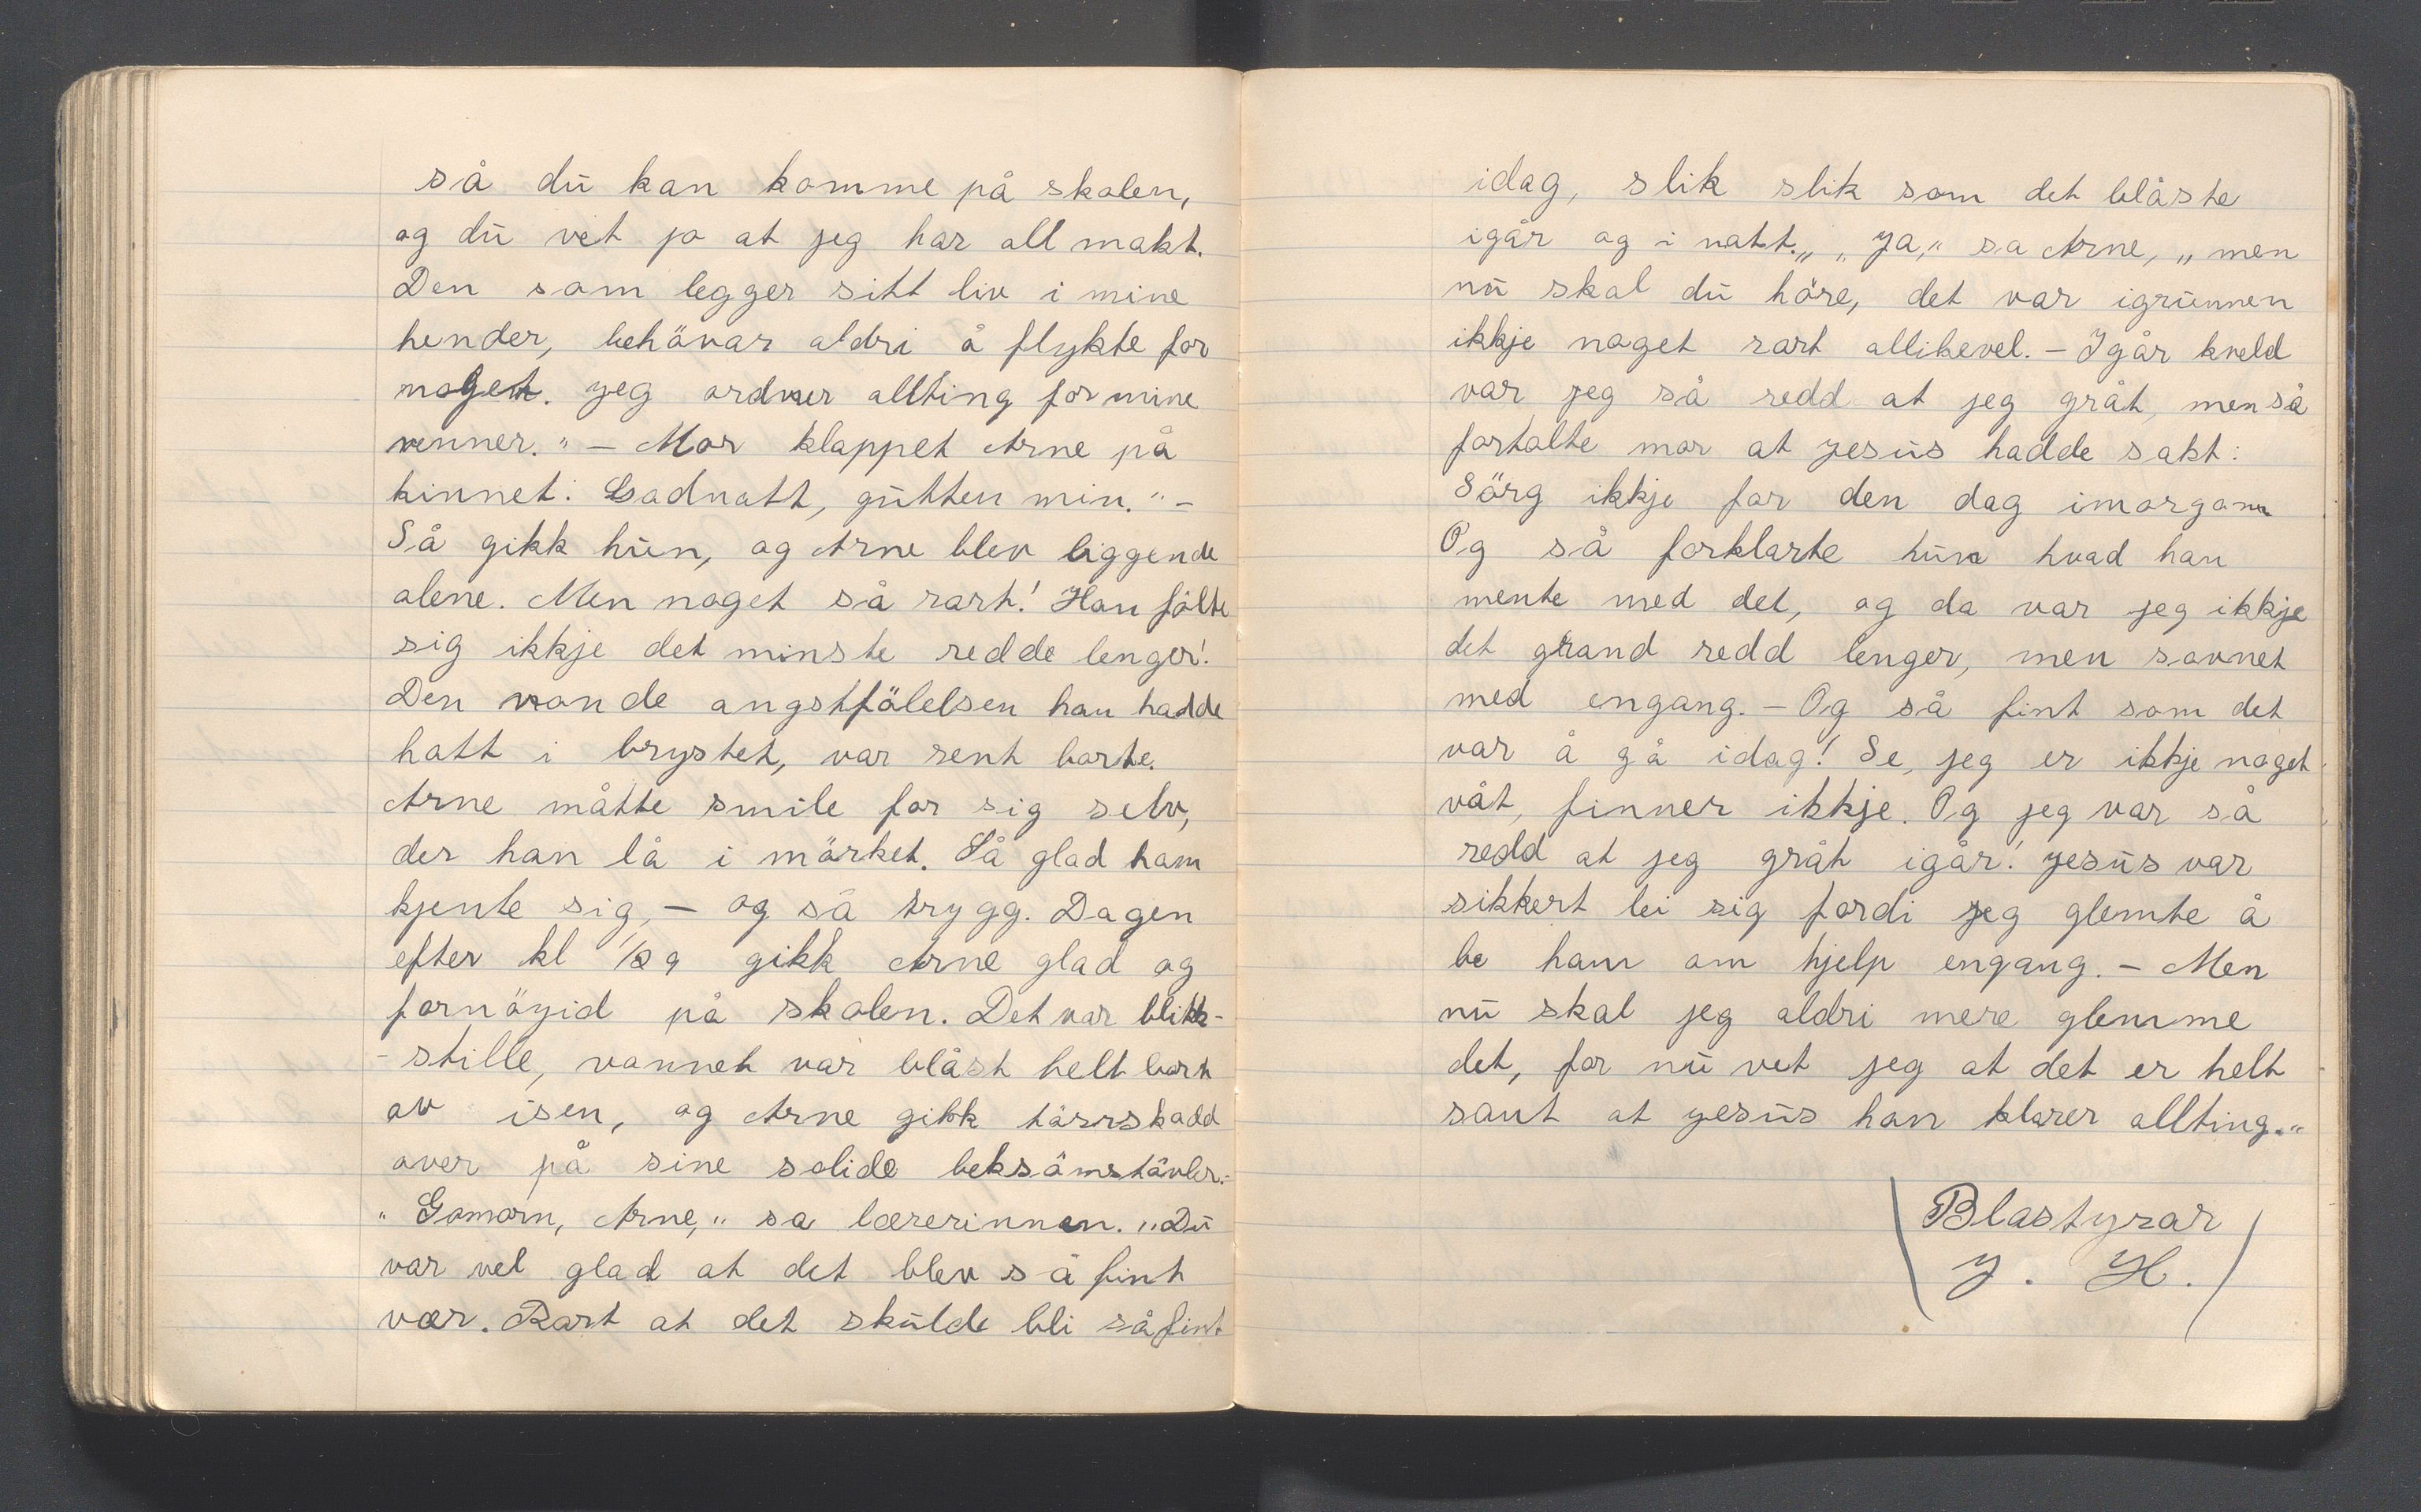 så du kan komme på skolen,
og du vet jo at jeg har all makt.
Den som legger sitt liv i mine
hender, behövar aldri å flykte for
noget. Jeg ordner allting for mine
venner." – Mor klappet Arne på
kinnet: Godnatt, gutten min." –
Så gikk hun, og Arne blev liggende
alene. Men noget så rart! Han fölte
sig ikkje det minste redde lenger!
Den vonde angstfölelsen han hadde
hatt i brystet, var rent borte.
Arne måtte smile for sig selv,
der han lå i mörket. Så glad ham
kjente sig, – og så trygg. Dagen
efter kl 1/2 9 gikk Arne glad og
fornöyid på skolen. Det var blikk-
-stille, vannet var blåst helt bort
av isen, og Arne gikk törrskodd
over på sine solide beksömstövler.-
"Gomorn, Arne," sa lærerinnen. "Du
var vel glad at det blev så fint
vær. Rart at det skulde bli så fint
idag, slik slik som det blåste
igår og i natt." "Ja," sa Arne, "men
nu skal du höre, det var igrunnen
ikkje noget rart allikevel. – Igår kveld
var jeg så redd at jeg gråt, men så
fortalte mor at Jesus hadde sakt:
Sörg ikkje for den dag imorgom
Og så forklarte hun hvad han
mente med det, og da var jeg ikkje
det grand redd lenger, men sovnet
med engang. – Og så fint som det
var å gå idag! Se, jeg er ikkje noget
våt, finner ikkje. Og jeg var så
redd at jeg gråt igår! Jesus var
sikkert lei sig fordi jeg glemte å
be ham om hjelp engang. – Men
nu skal jeg aldri mere glemme
det, for nu vet jeg at det er helt
sant at Jesus han klarer allting."
(Blastyrar
J. H.)